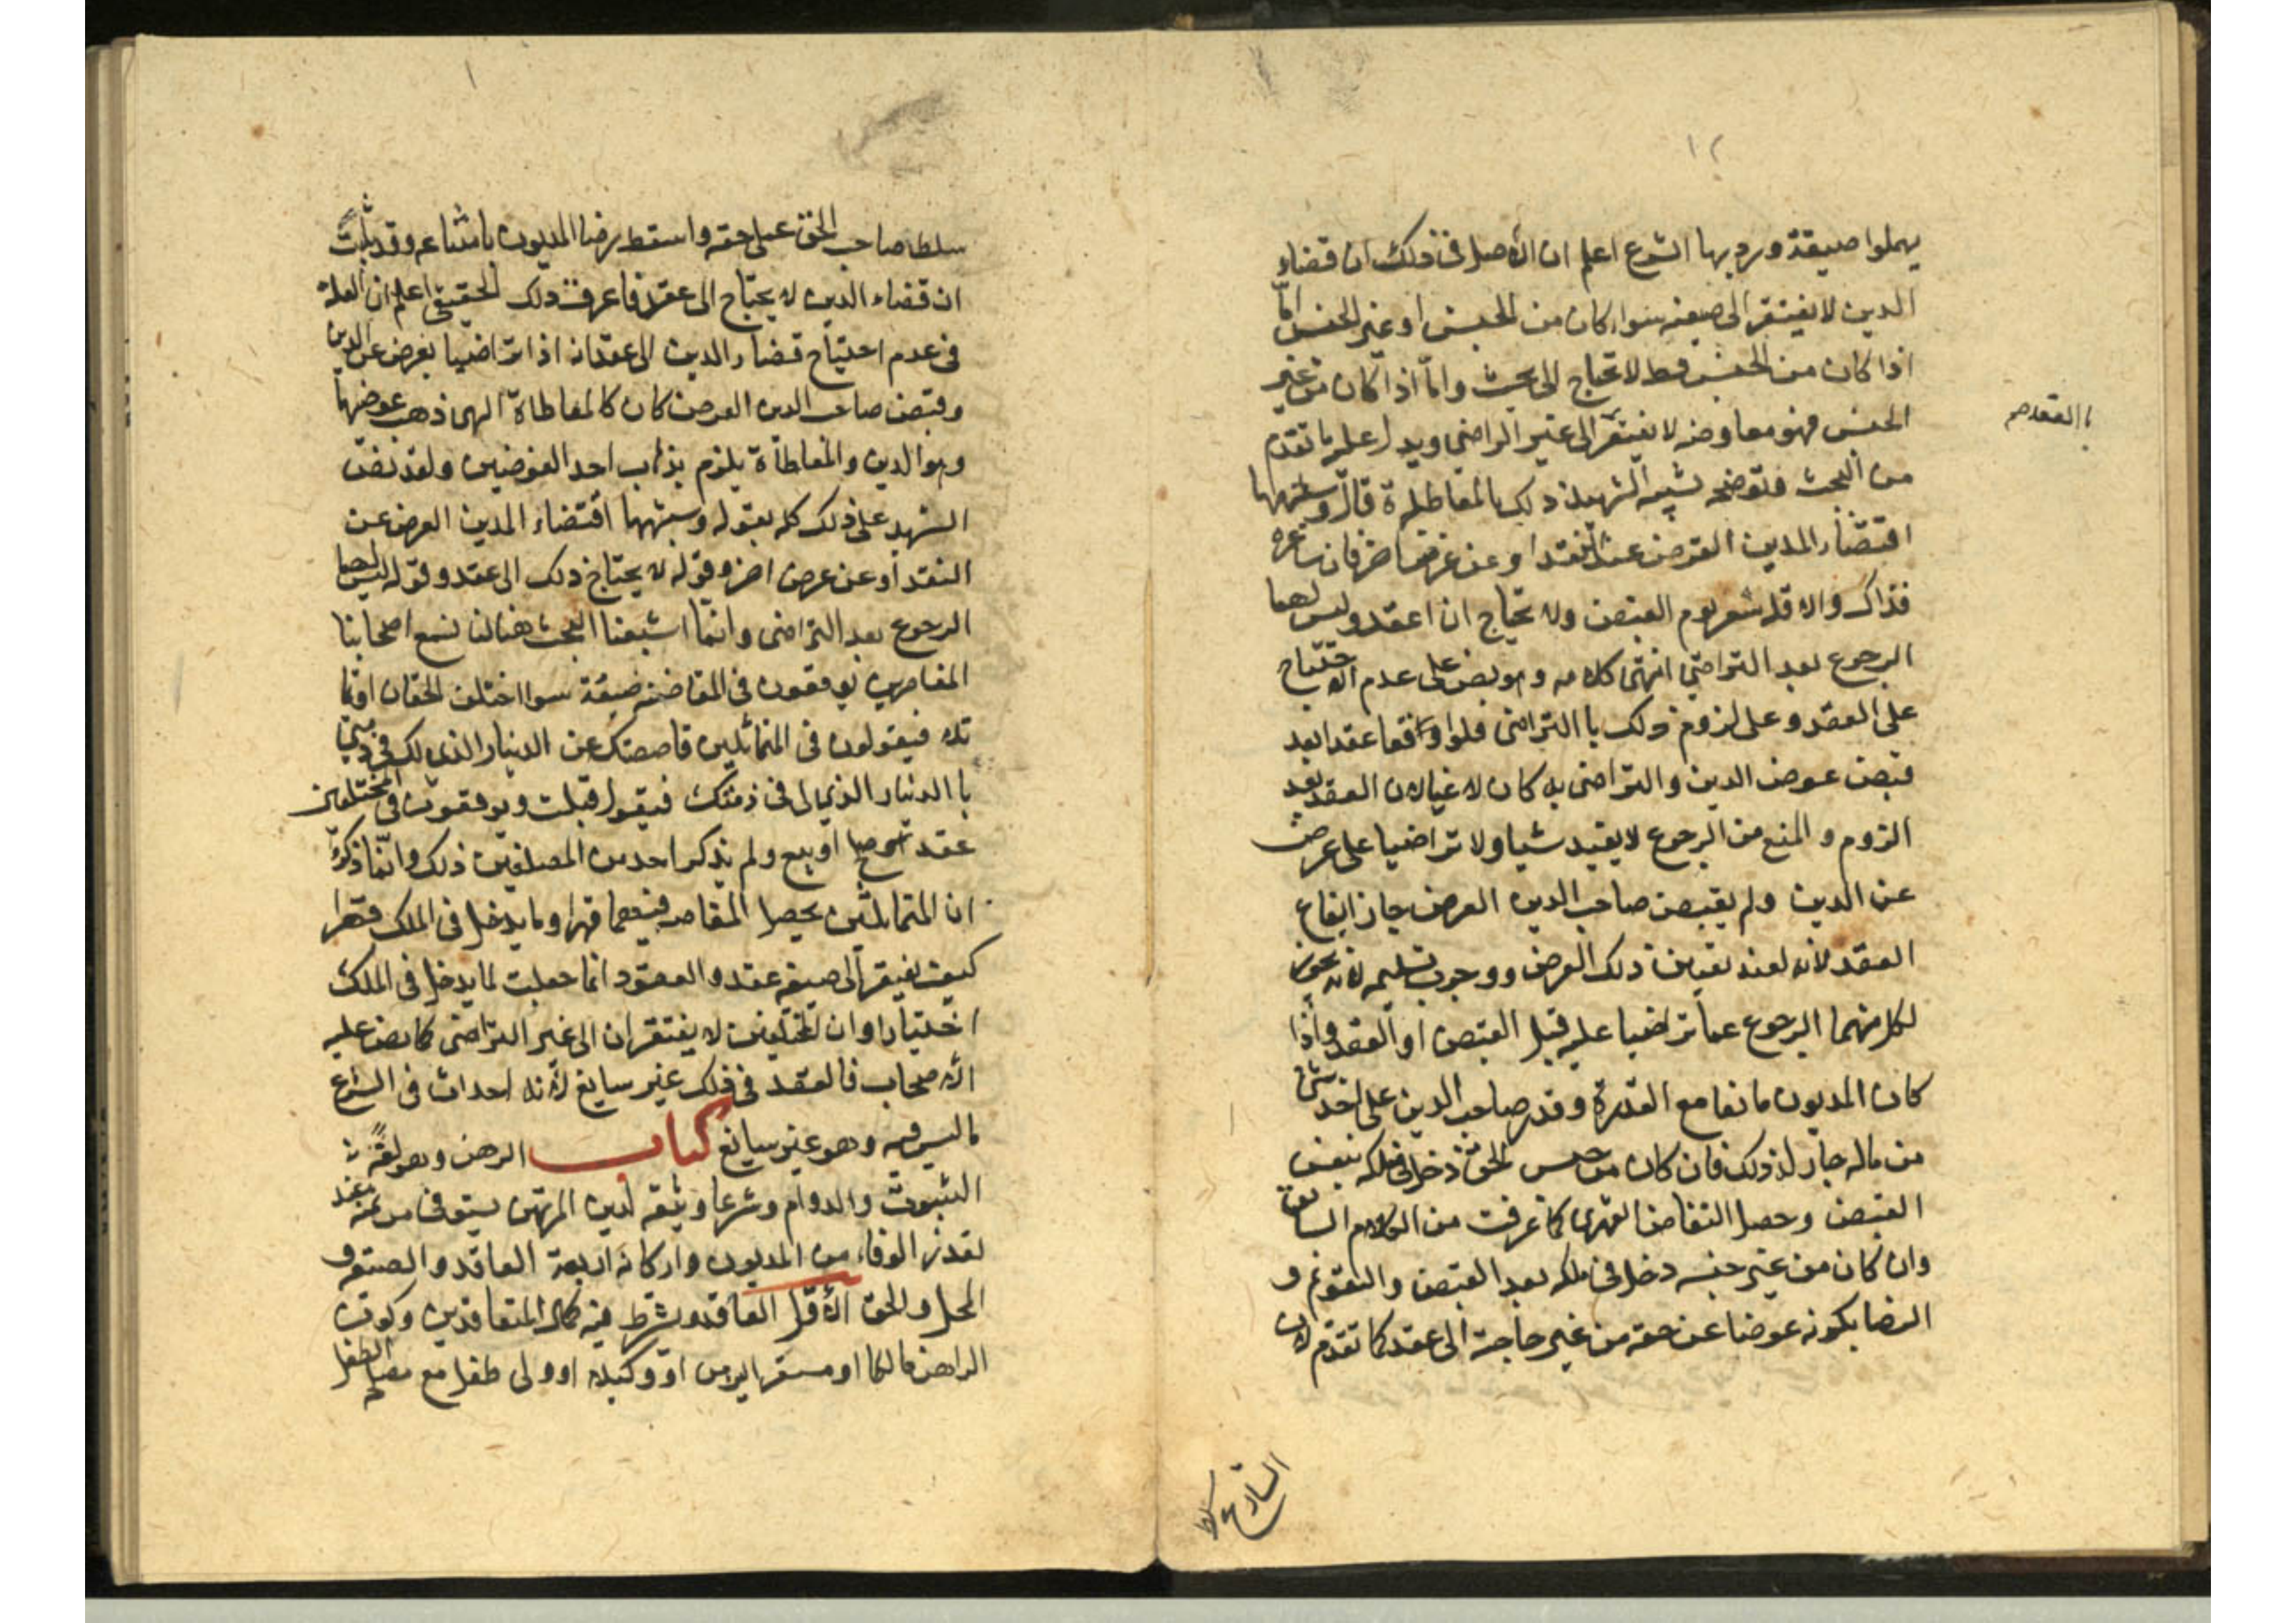 ١٢
يهملوا صيغة ورد بها الشرع اعلم ان الاصل في ذلك ان قضاء
الدين لا يفتقر الى صيغه سواء كان من الجنس او غير الجنس امّا
اذا كان من الجنس فقط لا يحتاج الى بحث وامّا اذا كان من غير
الجنس فهو معاوضه لا يفتقر الى غير الراضى ويدل عليه ما تقدم
با المتقدم
من البحث فتوضحه تشبيه الشهيد ذلك بالمعاطاة قال و
اقتضاء المدين العرض عن النقد او عن عرض اخر فان ساعره
فذاك والا فله سعر يوم القبض ولا يحتاج ان اعقد وليس لهما
الرجوع بعد التراضي انتهى كلامه وهو نص على عدم الاحتياج
على العقد وعلى لزوم ذلك با التراضى فلو اوقعا عقدا بعد
قبض عوض الدين والتراضى به كان لاغيا لان العقد بعد
الزوم والمنع من الرجوع لا يفيد شيا ولا تراضيا على عرض
عن الدين ولم يقبض صاحب الدين العرض جاز ايقاع
العقد لانه لعند تعيين ذلك العرض ووجوب تسليمه لانه يجوز
لكل منهما الرجوع عما تراضيا عليه قبل القبض او العقد واذا
كان المديون مانعا مع القدرة وقدر صاحب الدين على اخذ شئ
من ماله جاز له ذلك فان كان من جنس الحق دخل في ملكه بنفس
القبض وحصل التقاض القهرى كما عرفت من الكلام السابق
وان كان من غير جنسه دخل في ملكه بعد القبض والتقويم و
الرضا بكونه عوضا عن حقه من غير حاجة الى عقد كما تقدم لان
الشارع سلط
سلطا صاحب الحق على حقه واسقط رضا المديون بامتناعه وقد ثبت
ان قضاء الدين لا يحتاج الى عقد فاعرف ذلك الحقيق اعلم ان العلة
في عدم احتياج قضاء الدين الى عقد انه اذا تراضيا بعرض عن الدين
وقبض صاحب الدين العرض كان كالمعاطاة التى ذهب عوضها
وهو الدين والمعاطاة يلزم بذهاب احد العوضين ولقد نص
الشهيد على ذلك كله بقوله وشبهها اقتضاء المدين العرض عن
النقد او عن عرض اخر وقوله لا يحتاج ذلك الى عقد وقوله ليس لهما
الرجوع بعد التراضى وانما اشبعنا البحث هنا لنا نسمع اصحابنا
المعاصرين يوقعون في المقاصه صيغة سوا اختلف الحقان او تما
ثلا فيقولون في المتماثلين قاصصتك عن الدينار الذى لك في ذمتي
با الدينار الذي لى في ذمتك فيقول قبلت ويوقعون في المختلفين
عقد او بيع ولم يذكر احد من المصنفين ذلك وانما ذكروا
ان المتماثلين يحصل المقاصه فيهما قهرا وما يدخل في الملك قهرا
كيف يفيقر الى صيغه عقد والعقود انما جعلت لما يدخل في الملك
اختيارا وان المختلفين لا يفتقران الى غير التراضى كما نص عليه
الاصحاب فالعقد في ذلك غير سايغ لانه احداث في الشرع
ما ليس فيه وهو غير سايغ كتاب الرهن وهو لغةً
الثبوت والدوام وشرعا وثيقه لدين المرتهن يستوفى من ثمنه عند
تعذر الوفاء من المديون واركانه اربعة العاقد والصيغه و
المحل والحق الاول العاقد ويشترط فيه كمال المتعاقدين وكون
الراهن مالكا او مستعيرا للرهن او وكيلا او ولى طفل مع مصلحة الطفل